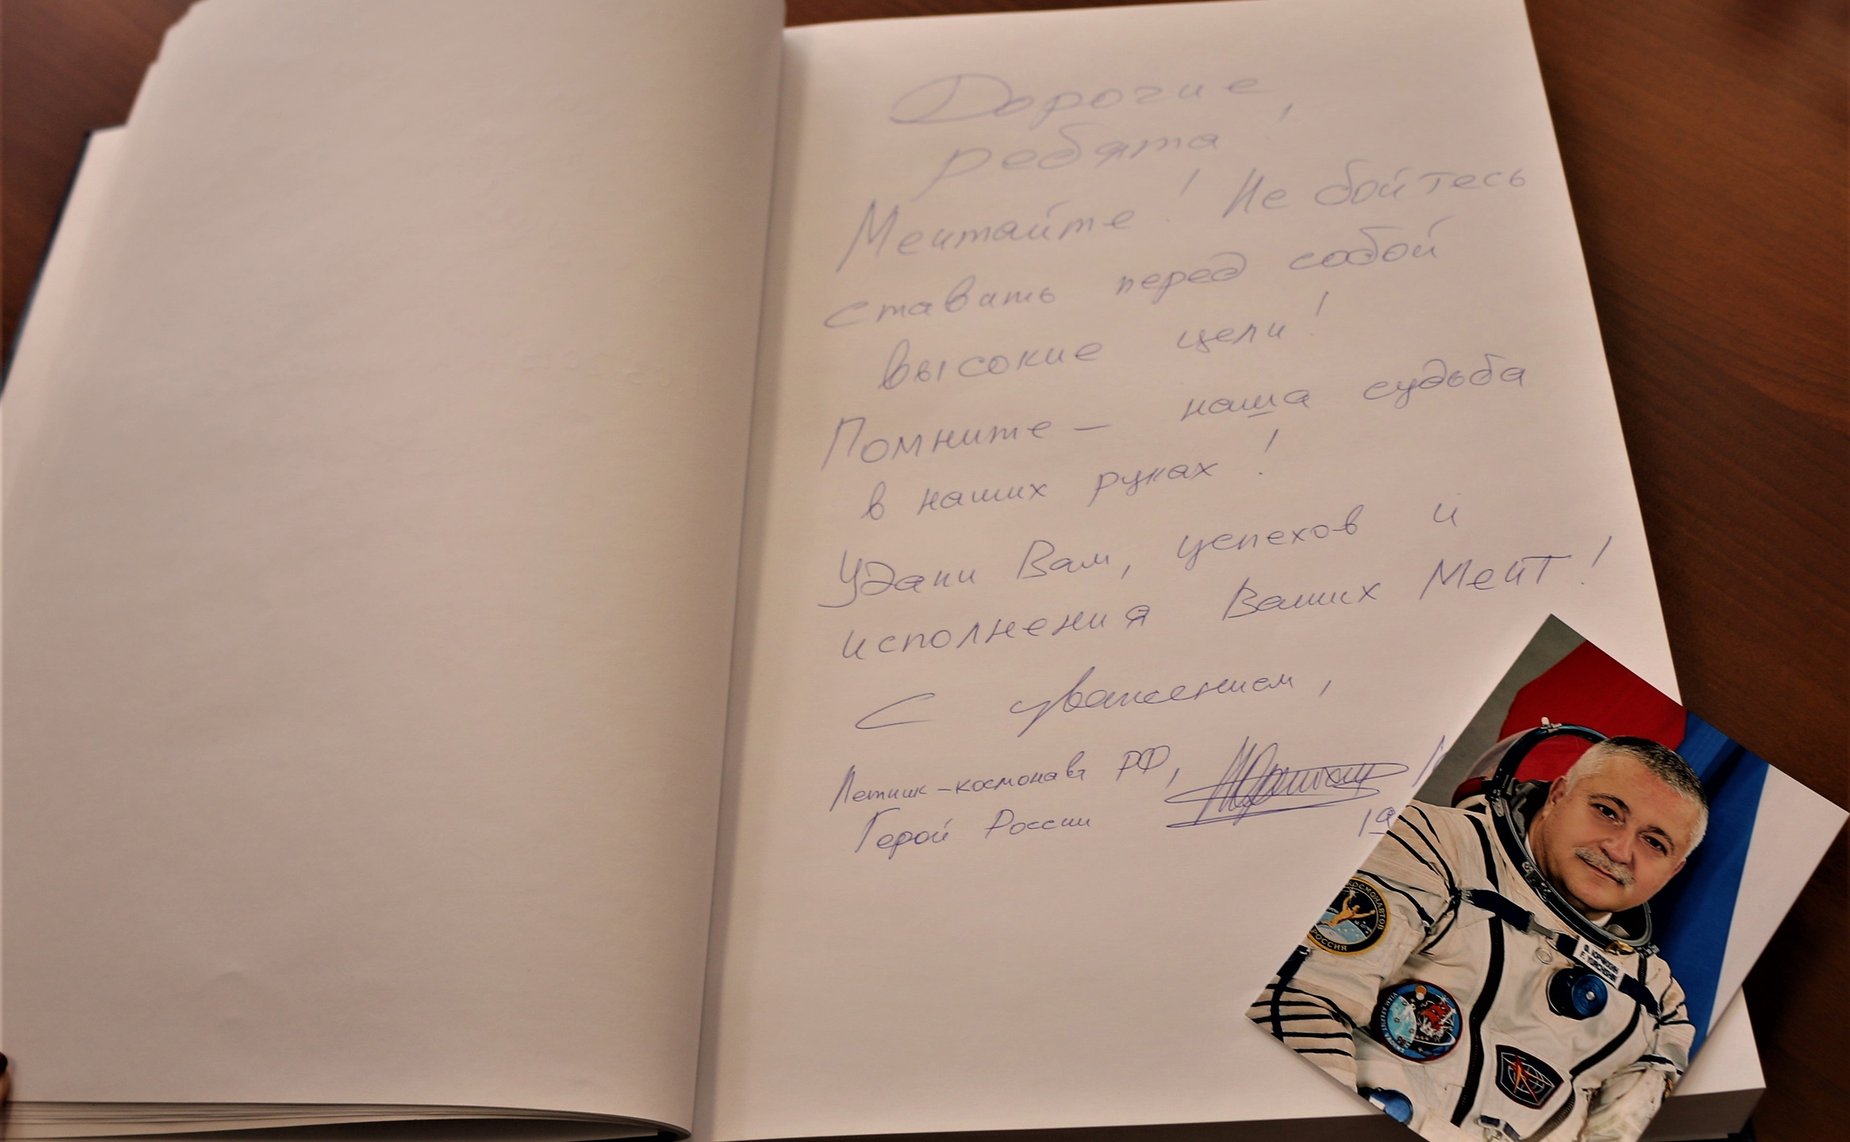 Дорогие
ребята!
Мечтайте! Не бойтесь
ставить перед собой
высокие цели!
Помните – наша судьба
в наших руках!
Удачи Вам, успехов и
исполнения Ваших Мечт!
С уважением,
Летчик-космонавт РФ,
Герой России
19
КОСМОНАВТОВ
РОССИЯ